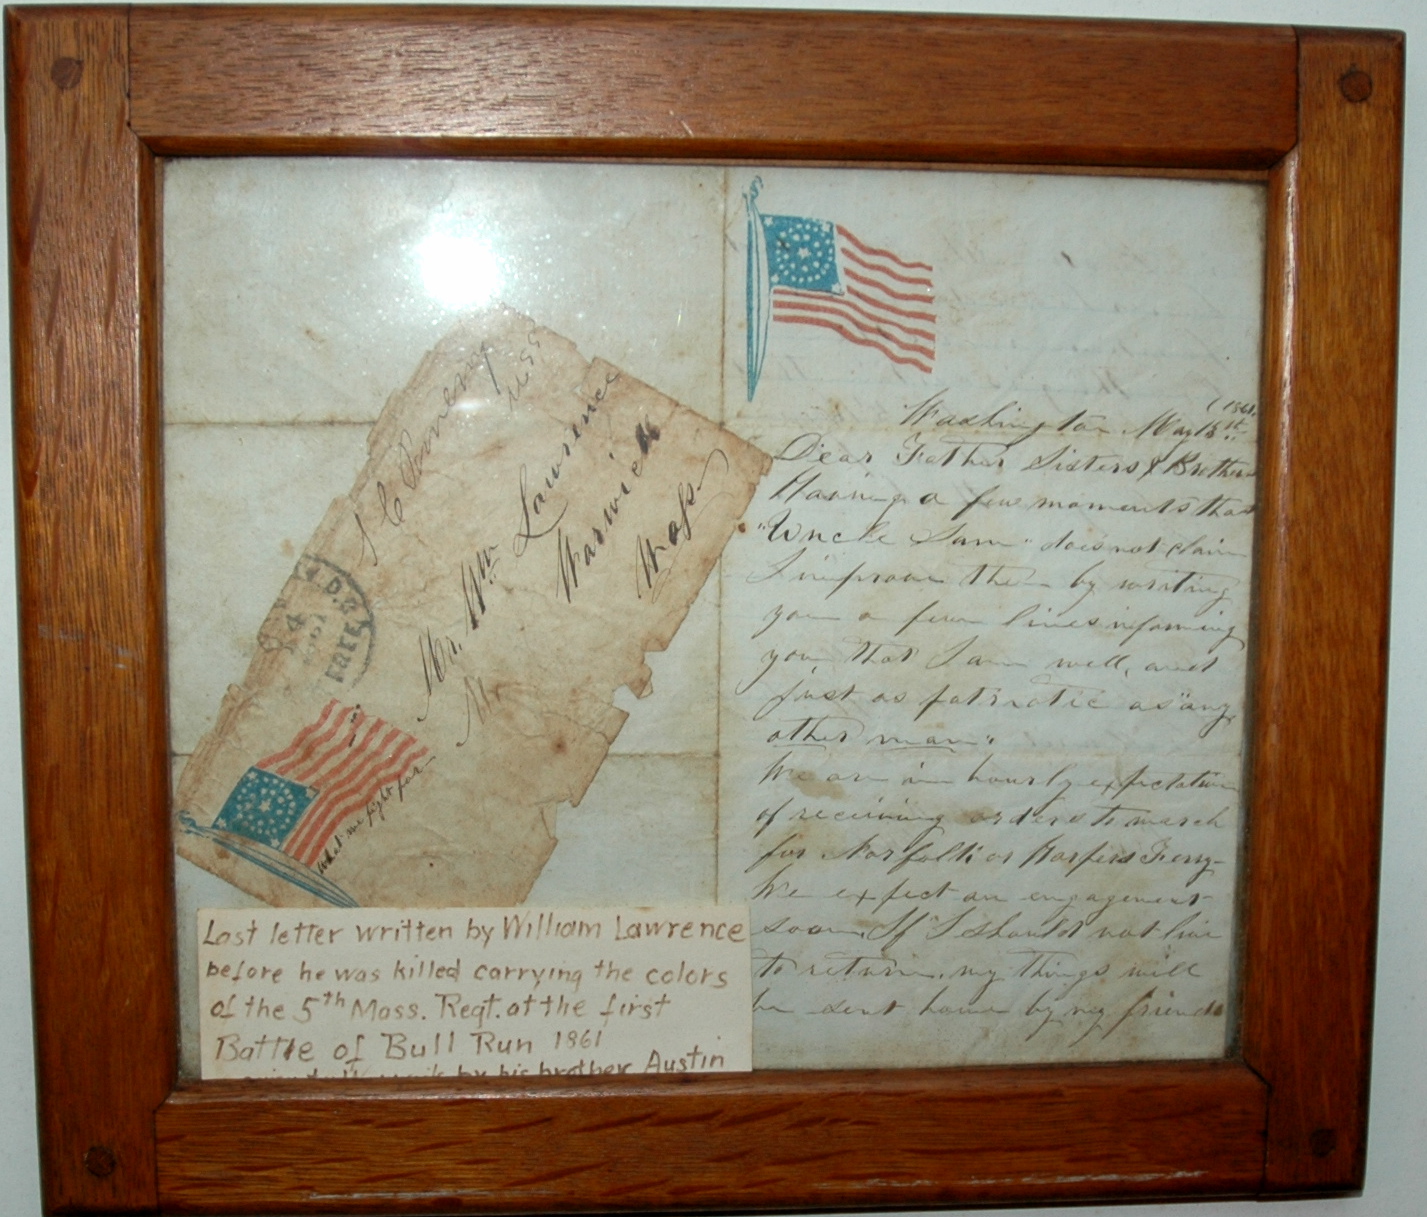 Mr. Wm Lawrence
Warwick
Mass
Mr
What we fight for
Last letter written by William Lawrence
before he was killed carrying the colors
of the 5th Mass. Regt. at the first
Battle of Bull Run 1861
by his brother Austin
1861.
Washington May
Dear Father Sisters & Brothers
Having a few moments that
"Uncle Sam" does not claim
I improve them by writing
you a few lines informing
you that I am well, and
just as patriotic as "any
other man".
We are in hourly expectation
of receiving orders to march
for Norfolk or Harpers Ferry
We expect an engagement
soon, If I should not live
to return, my things will
be sent home by my friends